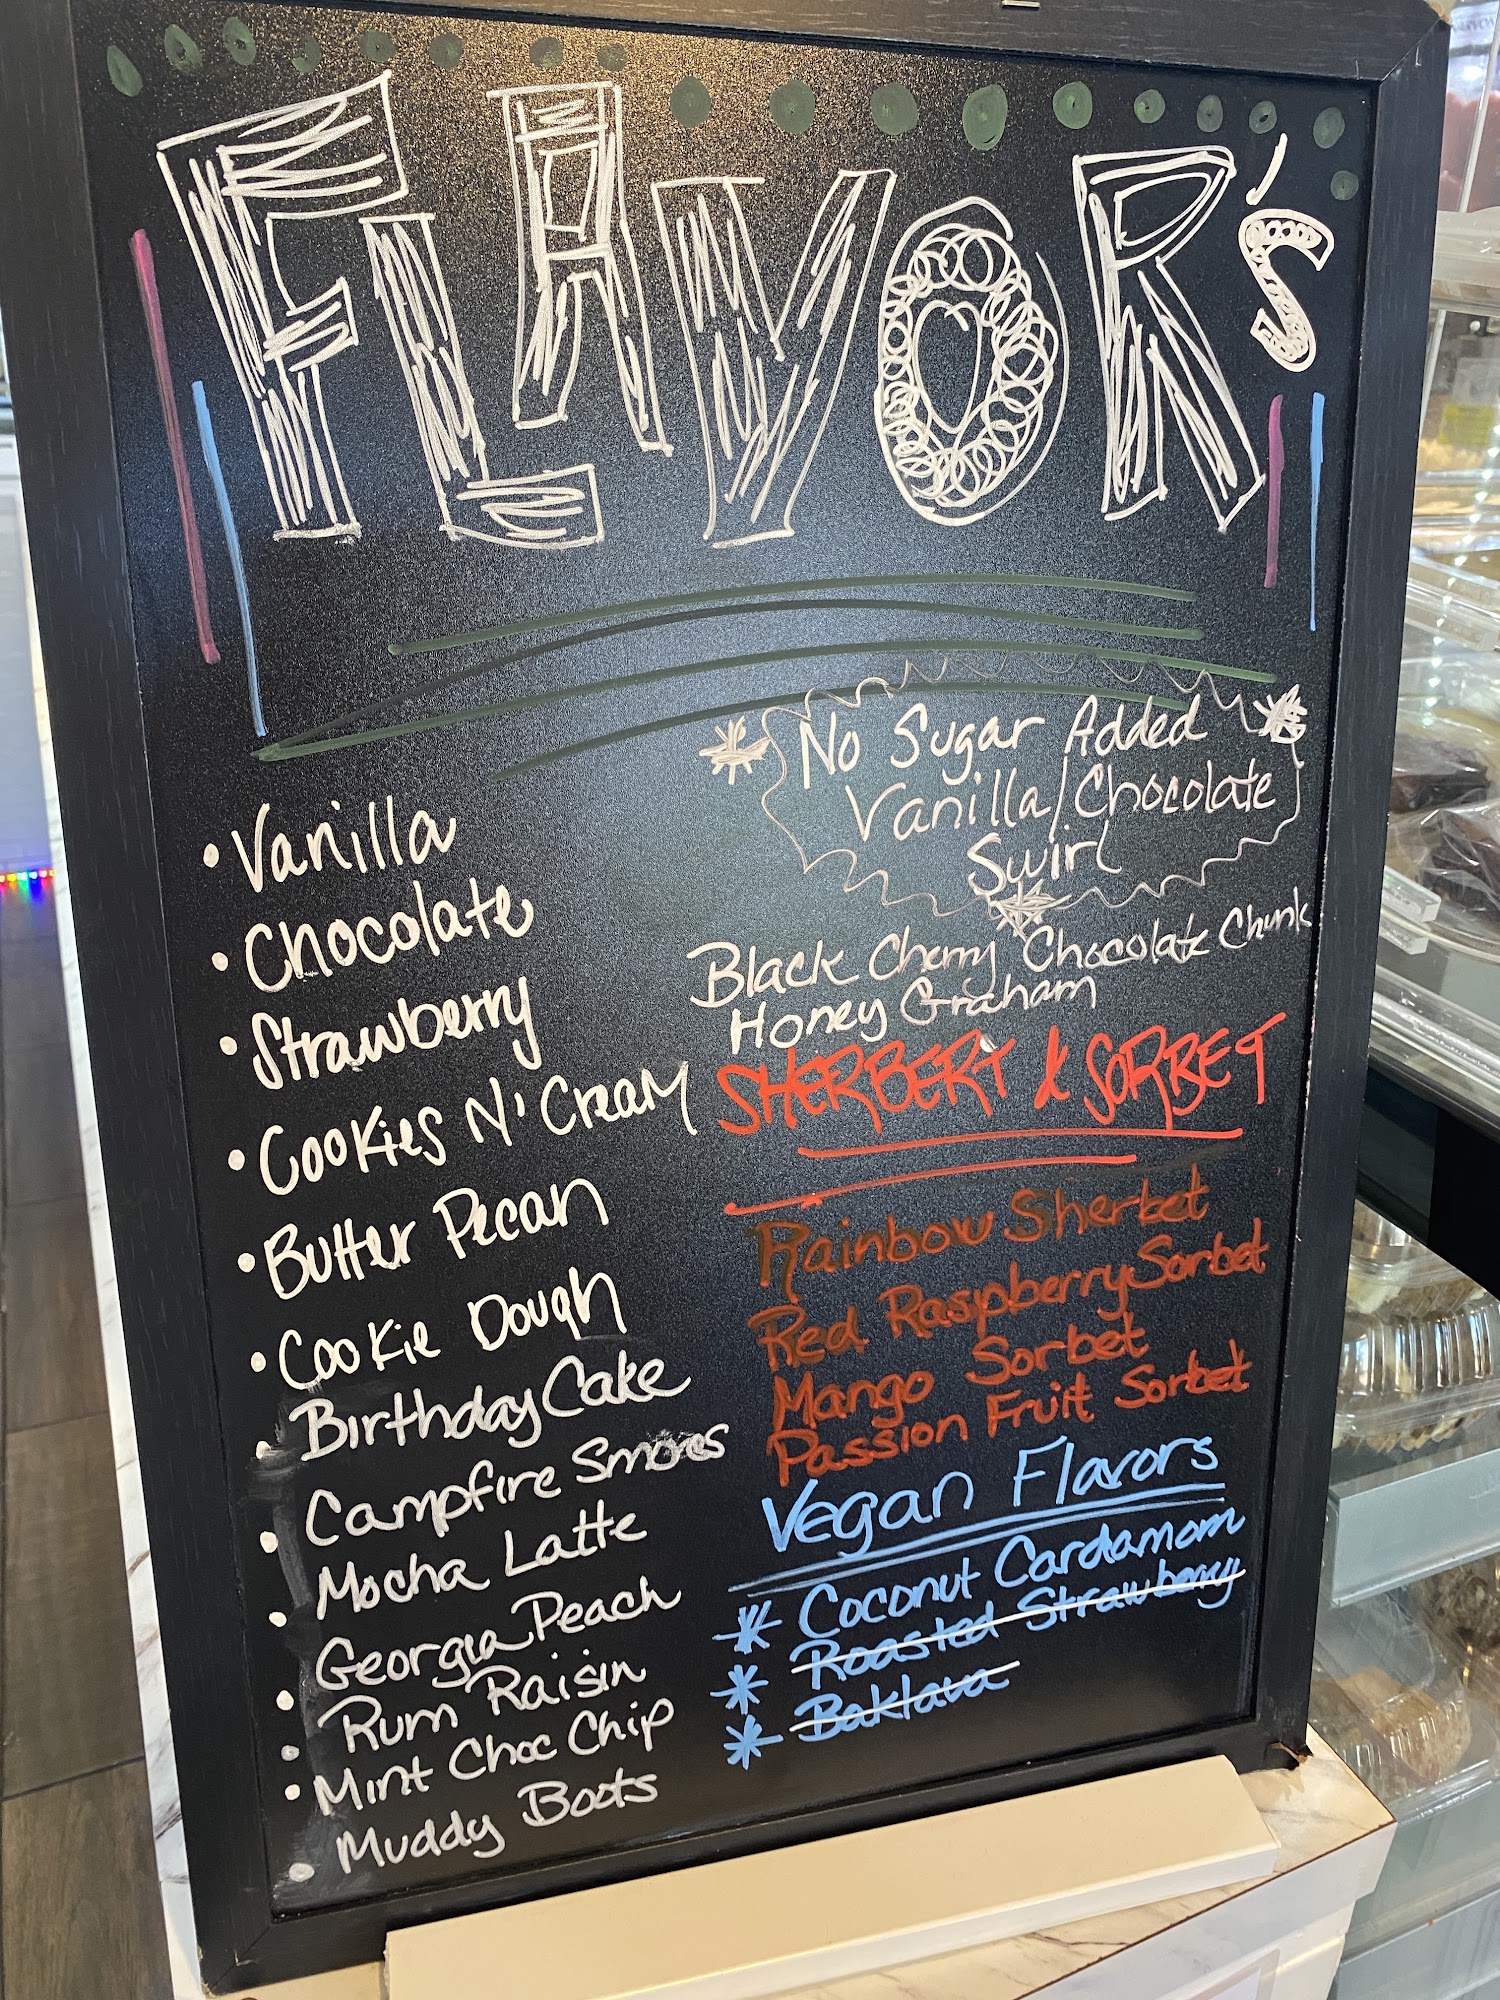 FLAVOR'S
• Vanilla
• Chocolate
• Strawberry
• Cookies N' Cream
• Butter Pecan
• Cookie Dough
• Birthday Cake
• Campfire Smores
• Mocha Latte
• Georgia Peach
• Rum Raisin
• Mint Choc Chip
• Muddy Boots
No Sugar Added
Vanilla/Chocolate
Swirl
Black Cherry Chocolate Chunk
Honey Graham
SHERBERT & SORBET
Rainbow Sherbet
Red Raspberry Sorbet
Mango Sorbet
Passion Fruit Sorbet
Vegan Flavors
* Coconut Cardamom
* Roasted Strawberry
* Baklava